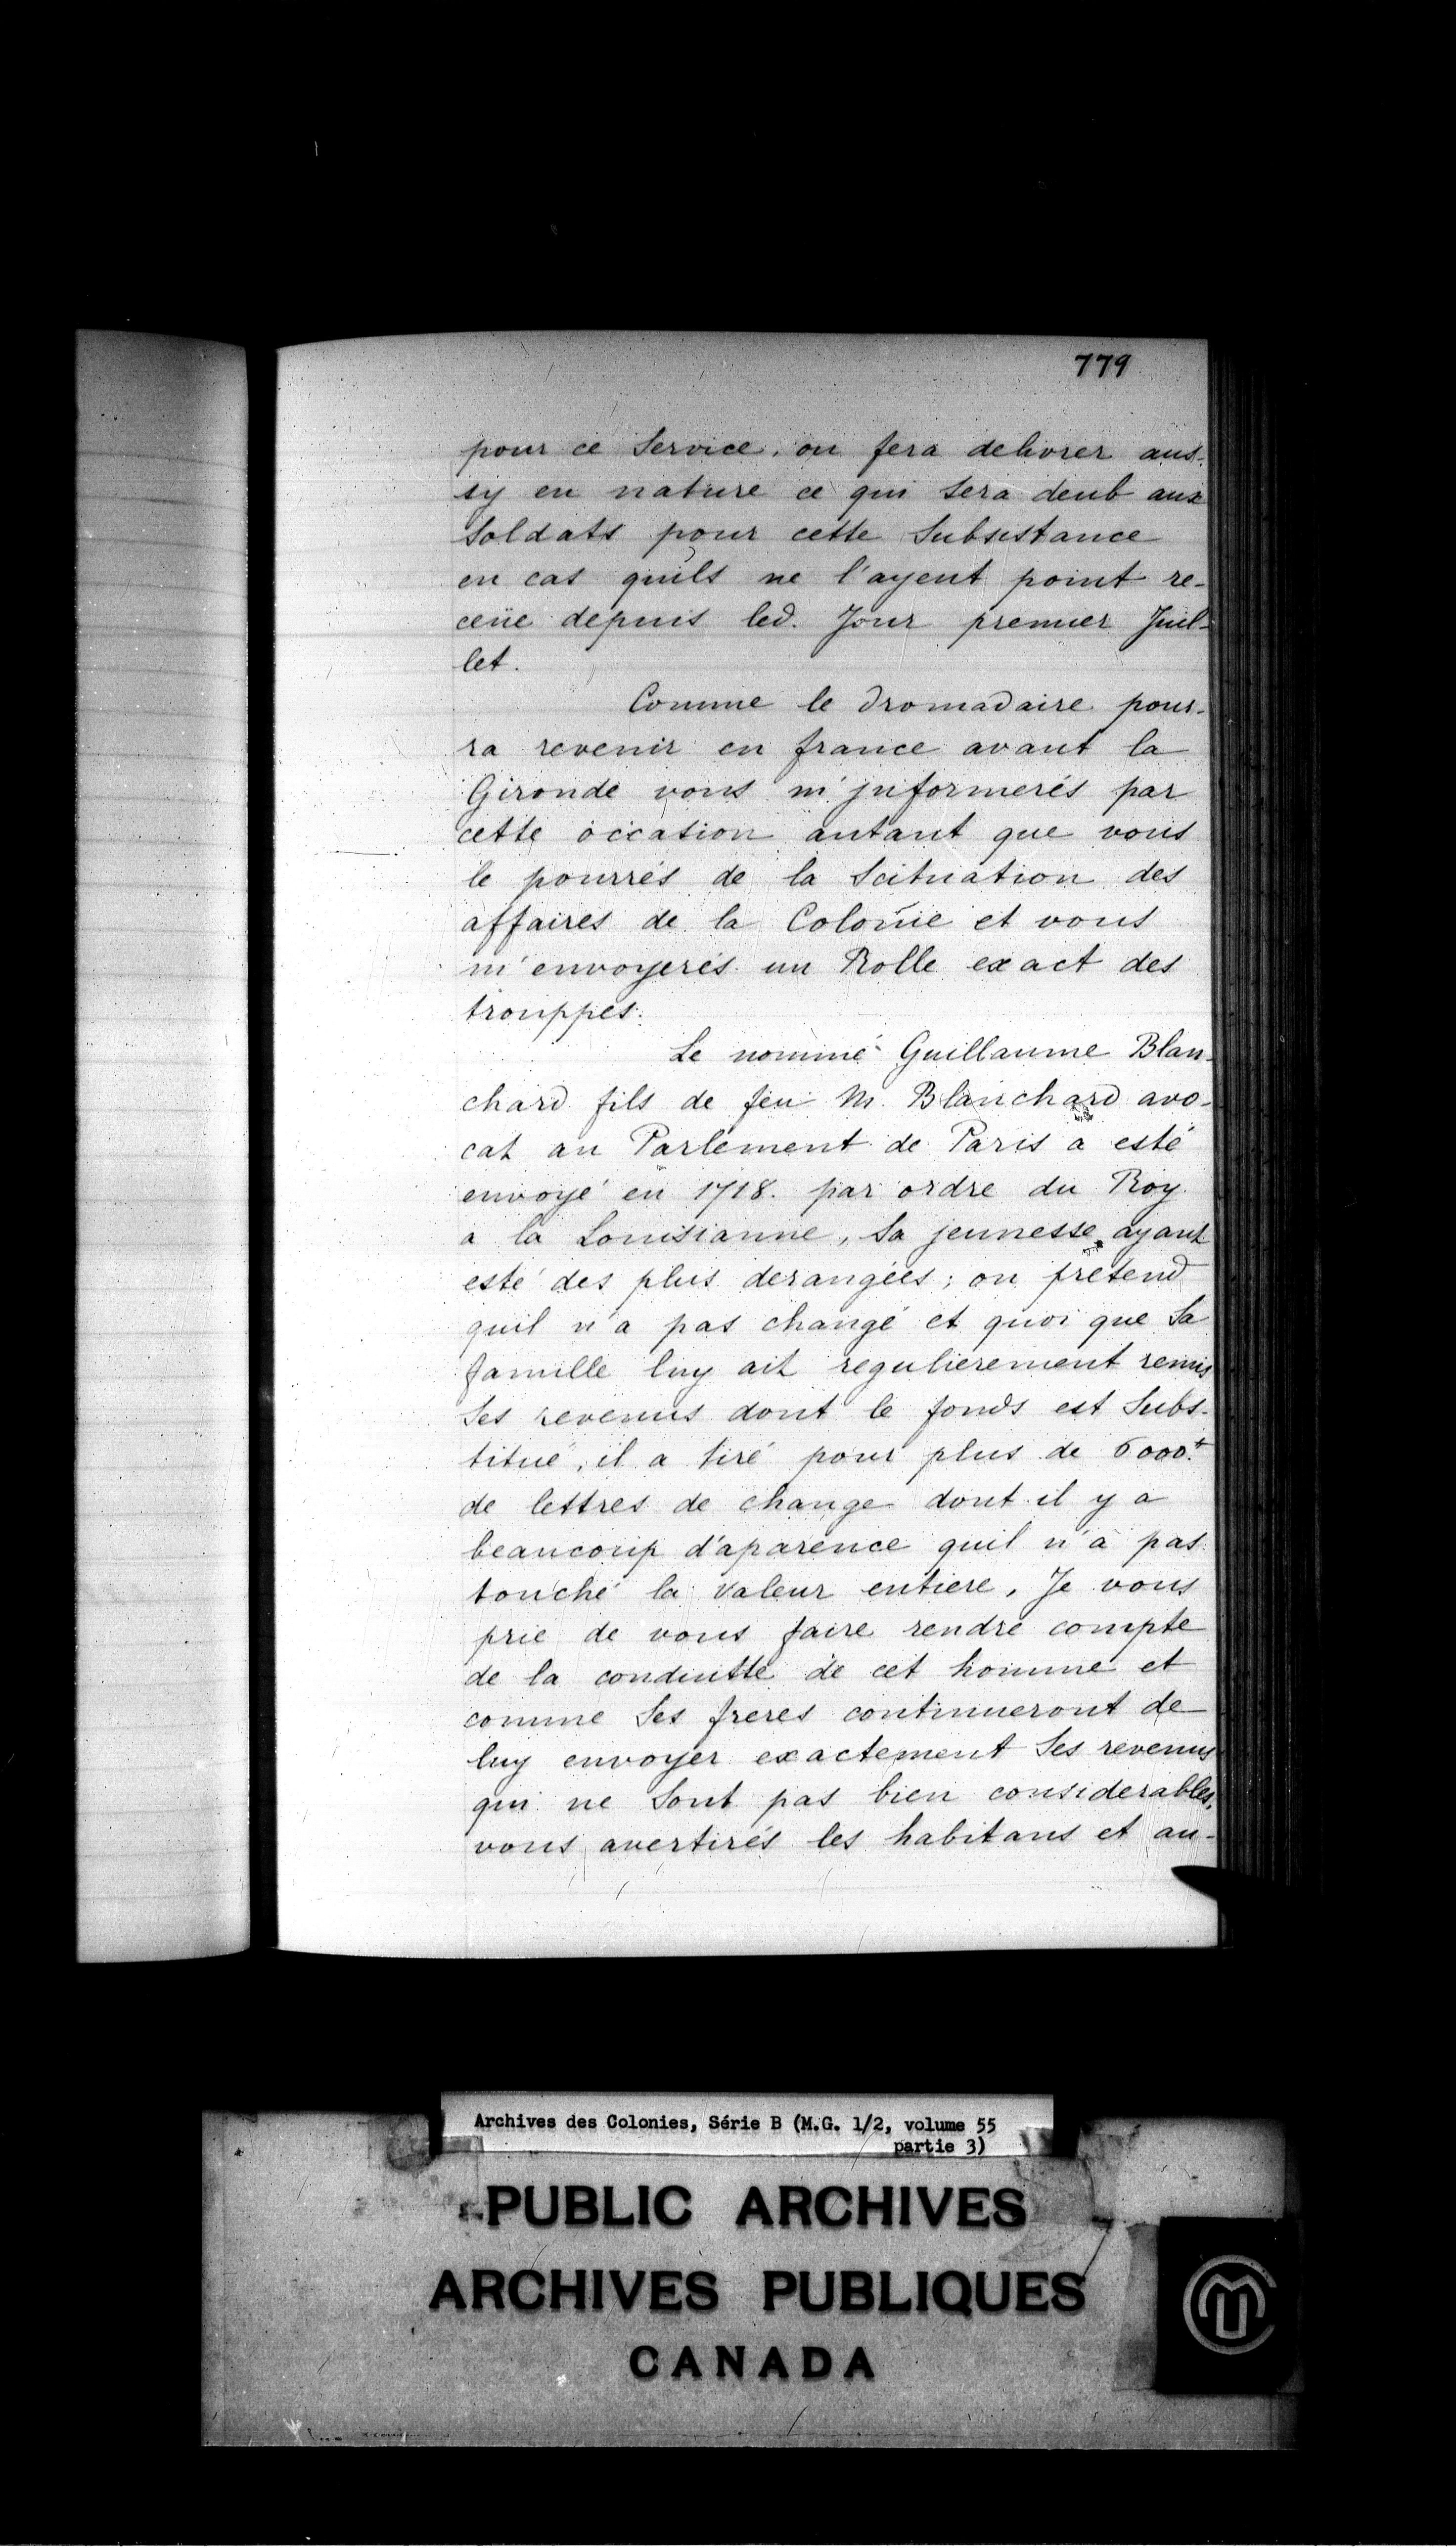 779
pour ce Service, on fera delivrer aus-
sy en nature ce qui sera deub aux
Soldats pour cette Subsistance
en cas quils ne l'ayent point re-
ceüe depuis led. Jour premier Juil-
let.
Comme le dromadaire pour-
ra revenir en france avant la
Gironde vous m'jnformerés par
cette occasion autant que vous
le pourrés de la Scituation des
affaires de la Colonie et vous
m'envoyerés un Rolle exact des
trouppes.
Le nommé Guillaume Blan-
chard fils de feu M. Blanchard avo-
cat au Parlement de Paris a esté
envoyé en 1718. par ordre du Roy
a la Louisianne, Sa jeunesse ayant
esté des plus derangées; on pretend
quil n'a pas changé et quoi que Sa
famille luy ait regulierement remis
Ses revenus dont le fonds est Subs-
titué, il a tiré pour plus de 6000ᵗ
de lettres de change dont il y a
beaucoup d'aparence quil n'a pas
touché la valeur entiere, Je vous
prie de vous faire rendre compte
de la conduitte de cet homme et
comme Ses freres continueront de
luy envoyer exactement Ses revenus
qui ne Sont pas bien considerables,
vous avertirés les habitans et au-
Archives des Colonies, Série B (M.G. 1/2, volume 55
partie 3)
PUBLIC ARCHIVES
ARCHIVES PUBLIQUES
CANADA